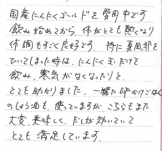 国産にんにくゴールドを愛用中です
飲み始めてから、体がとても熱くなり
体調もすごく良好です。特に夏風邪を
ひいてしまった時は、にんにくだけで
飲み、寒気がなくなったりと、
とても助かりました。一緒に印かごはん
のしょう油も、使っていますが、こちらもまた
大変、美味しく、だしが効いていて
とても満足しています。